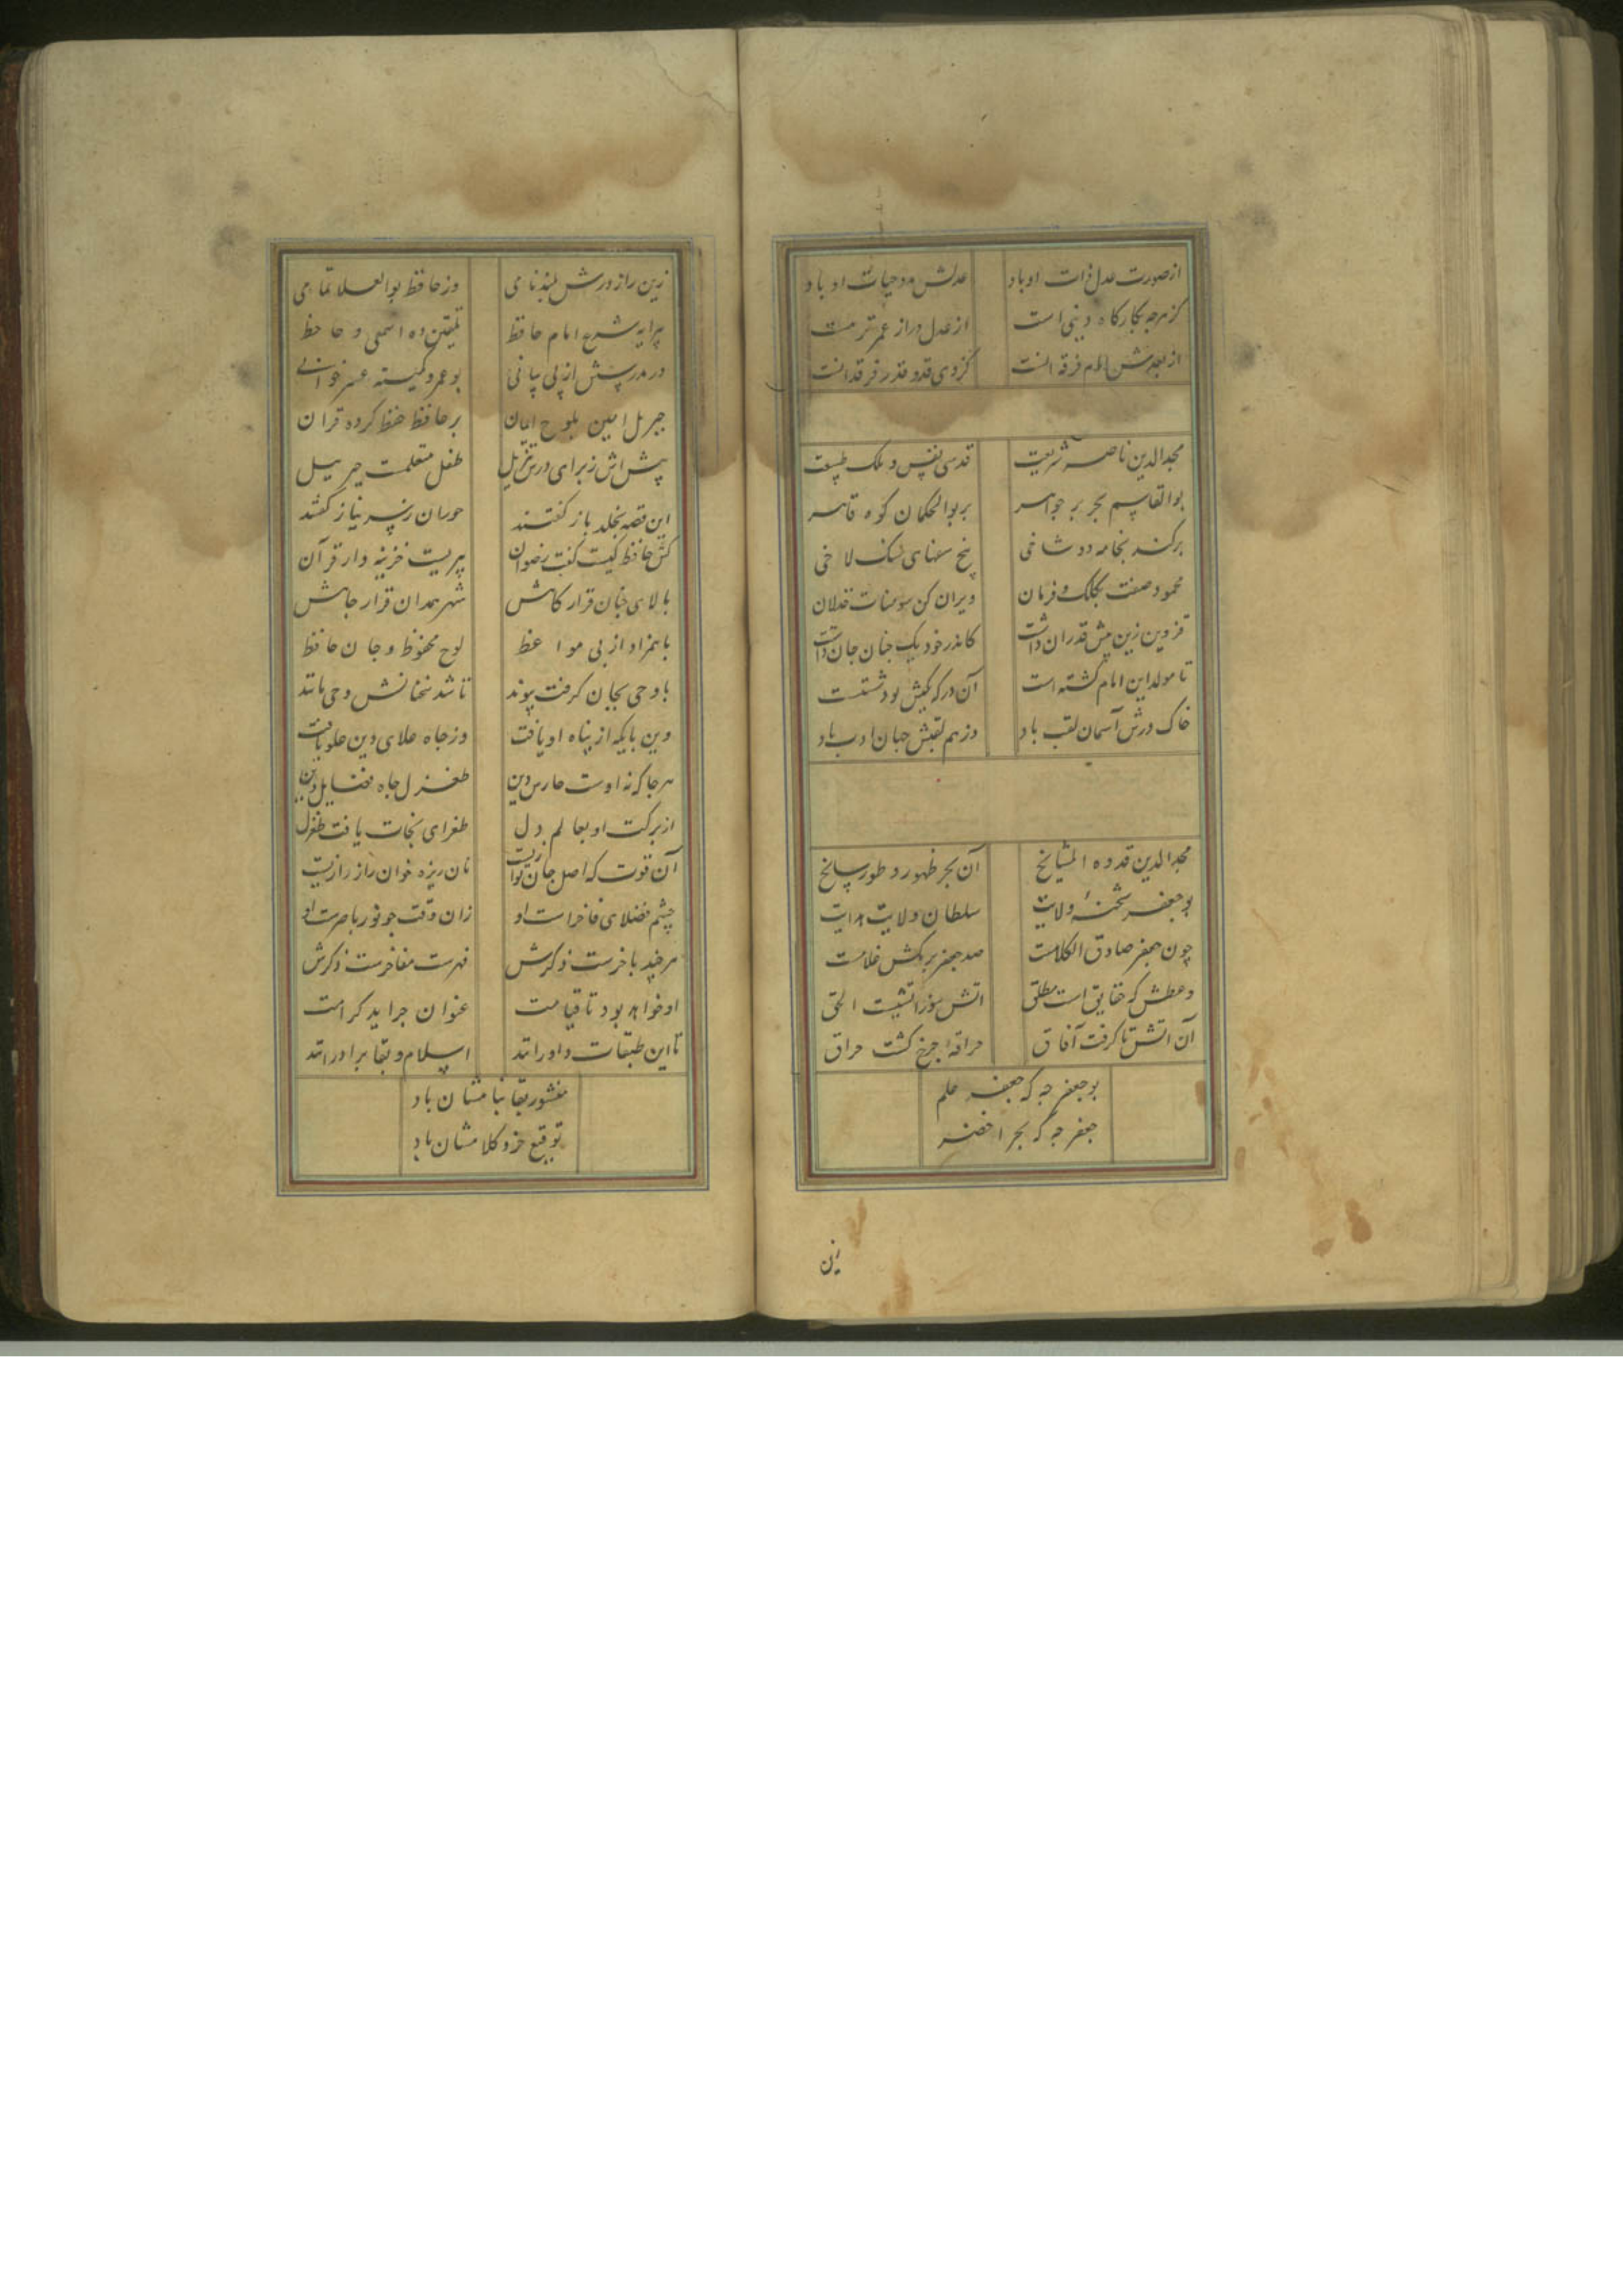 از صورت عدل ذات او باد عدلش مدد حیات او باد
کز هرچه بکارکاه دنیی است از عدل دراز عمرتر نیست
از بعدش امام فرقه انست کز وی قدو قدر فرقدانست
مجدالدین ناصر شریعت قدسی نفس و ملک طبیعت
بوالقاسم بحر پر جواهر بر بوالحکمان کوه قاهر
برکند بخامه دو شاخی بیخ سنهای سنک لاخی
محمود صفت بکلک و فرمان ویران کن سومنات خذلان
قزوین زین پیش قدر آن داشت کاندر خود یک جنان جان داشت
تا مولد این امام کشته است آن درکه کیش بود شتست
خاک درش آسمان لقب باد وز هم لقبش جهان ادب باد
مجدالدین قدوه المشایخ آن بحر ظهور و طور راسخ
بوجعفر شحنه ولایت سلطان ولایت هدایت
چون جعفر صادق الکلامست صد جعفر برمکش غلامست
وعظش که حقایق است مطلق اتش سوز اتشیست الحق
آن اتش تا کرفت آفاق حراقه چرخ کشت حراق
بوجعفر چه که جعفر علم
جعفر چه که بحر اخضر
این
زین راز درش بلند نامی وز حافظ بوالعلا تمامی
پیرایه شرع امام حافظ تلقین ده اسمعی و حافظ
در مدرسش از پی بیانی بوعمرو کمینه عشر خوانی
جبریل امین بلوح ایمان بر حافظ حفظ کرده قران
پیش اش ز برای درس تنزیل طفل متعلمست جبریل
این قصه بخلد باز کفتند حوران ز سر نیاز کفتند
کین حافظ کیست کفت رضوان پیریست خزینه دار قرآن
بالای جنان قرار کاهش شهر همدان قرار جاهش
با همزاد از پی مواعظ لوح محفوظ و جان حافظ
با وحی بجان کرفت پیوند تا شد سخنانش وحی مانند
دین پایکه از پناه او یافت وز جاه علای دین علو یافت
هر جا که نه اوست حارس دین طغرل جاه فضایل
از برکت او بعالم دل طغرای نجات یافت طغرل
آن قوت که اصل جان نوازیست نان ریزه خوان راز رازیست
چشم فضلای فاخر است او زان وقت چو نور باصرست او
هر چند باخرست ذکرش فهرست مفاخرست ذکرش
او خواهد بود تا قیامت عنوان جراید کرامت
تا این طبقات داور انند اسلام و بقا برادر انند
منشور بقا بنامشان باد
توقیع خرد کلامشان باد